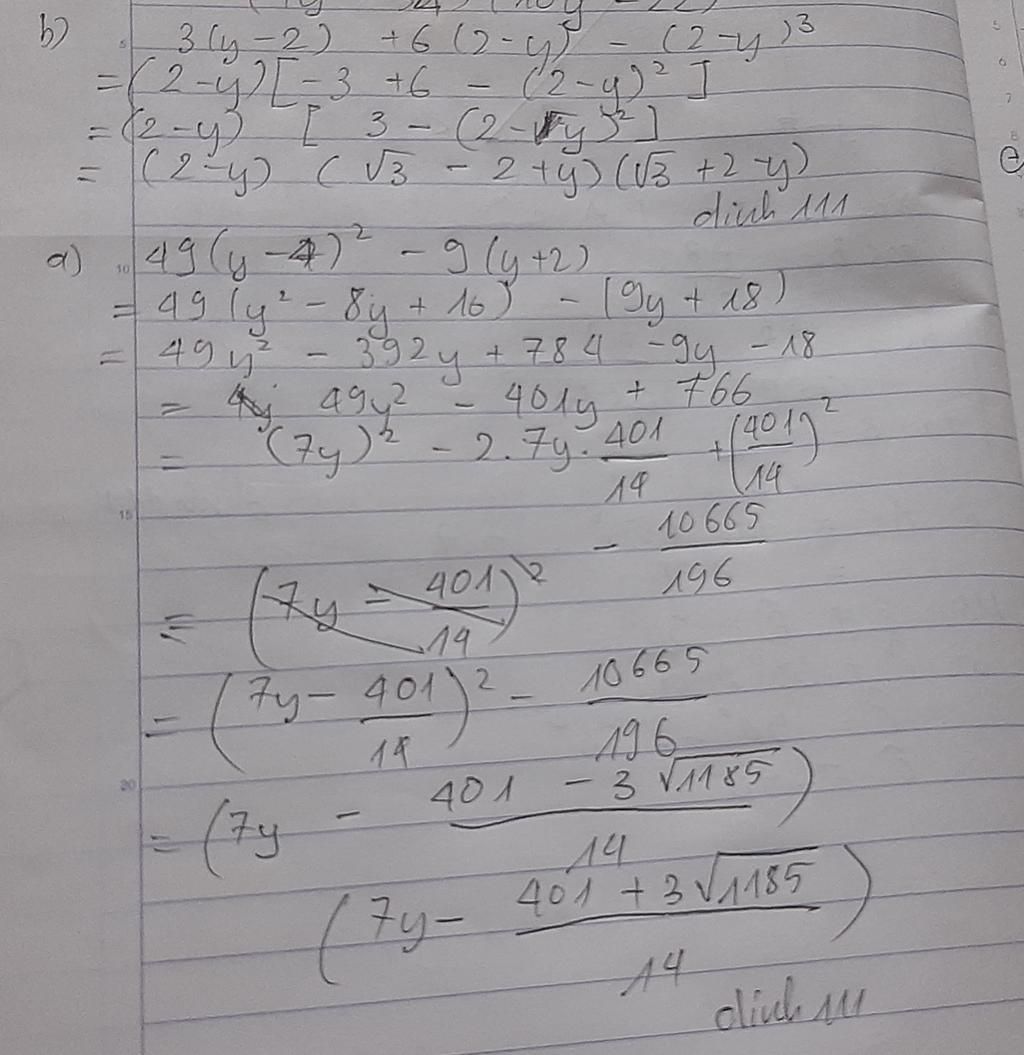 b) 3(y-2) + 6(2-y) - (2-y)³
= (2-y)[-3 + 6 - (2-y)²]
= (2-y) [3 - (2-y)²]
= (2-y) (√3 - 2 + y)(√3 + 2 - y)
dinh 111
a) 49(y-4)² - 9(y+2)
= 49(y² - 8y + 16) - (9y + 18)
= 49y² - 392y + 784 - 9y - 18
= 49y² - 401y + 766
= (7y)² - 2.7y.401/14 + (401/14)²
- 10665/196
= (7y - 401/14)²
= (7y - 401/14)² - 10665/196
= (7y - (401 - 3√1185)/14)
(7y - (401 + 3√1185)/14)
dinh 111